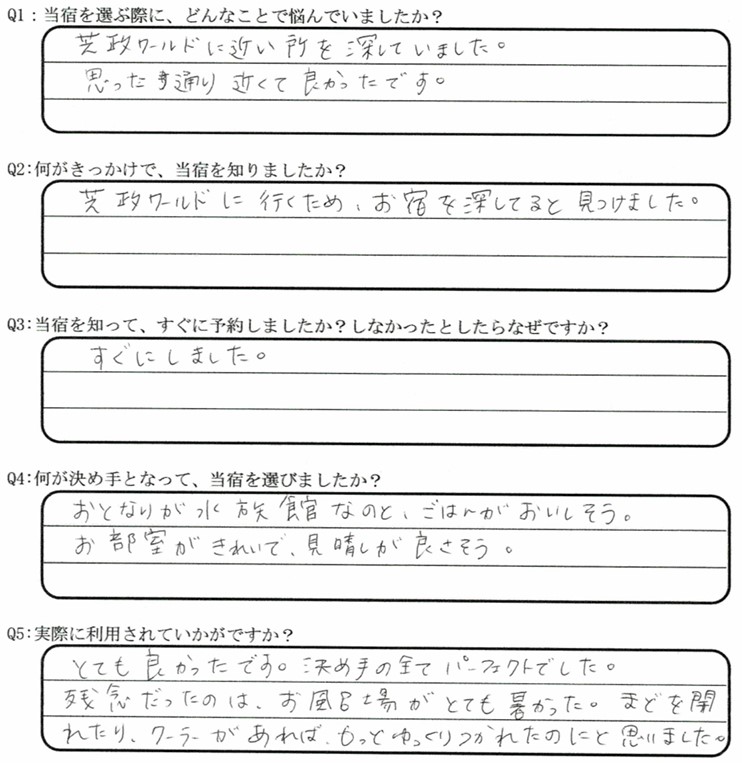 Q1：当宿を選ぶ際に、どんなことで悩んでいましたか？
芝政ワールドに近い所を深していました。
思った通り近くて良かったです。
Q2：何がきっかけで、当宿を知りましたか？
芝政ワールドに行くため、お宿を深してると見つけました。
Q3：当宿を知って、すぐに予約しましたか？しなかったとしたらなぜですか？
すぐにしました。
Q4：何が決め手となって、当宿を選びましたか？
おとなりが水族館なのと、ごはんがおいしそう。
お部室がきれいで、見晴しが良さそう。
Q5：実際に利用されていかがですか？
とても良かったです。決め手の全てパーフェクトでした。
残念だったのは、お風呂場がとても暑かった。まどを開
れたり、クーラーがあれば、もっとゆっくりつかれたのにと思いました。